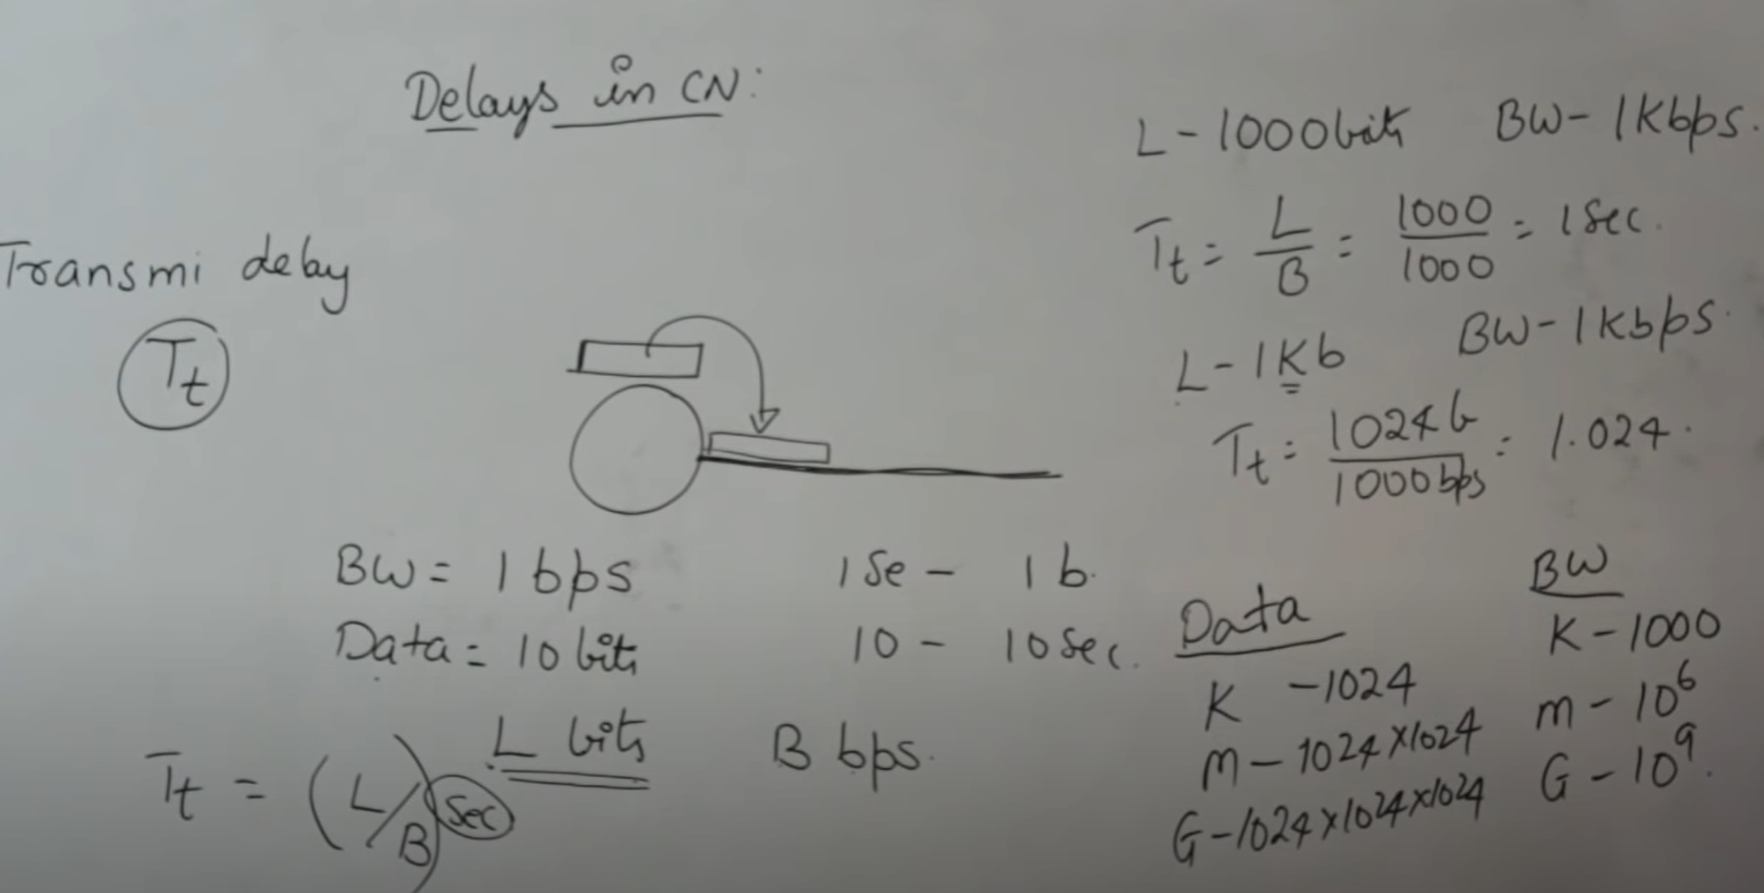 Delays in CN:
Transmi delay
Tt
BW = 1 bps
1 Se - 1 b.
Data = 10 bits
10 - 10 Sec.
L bits
B bps.
Tt = (L/B) Sec
L - 1000 bits BW - 1 Kbps.
Tt = L/B = 1000/1000 = 1 Sec.
L - 1 Kb BW - 1 Kbps.
Tt = 1024 b/1000 bps = 1.024.
Data
K - 1024
m - 1024 x 1024
G - 1024 x 1024 x 1024
BW
K - 1000
m - 10^6
G - 10^9.